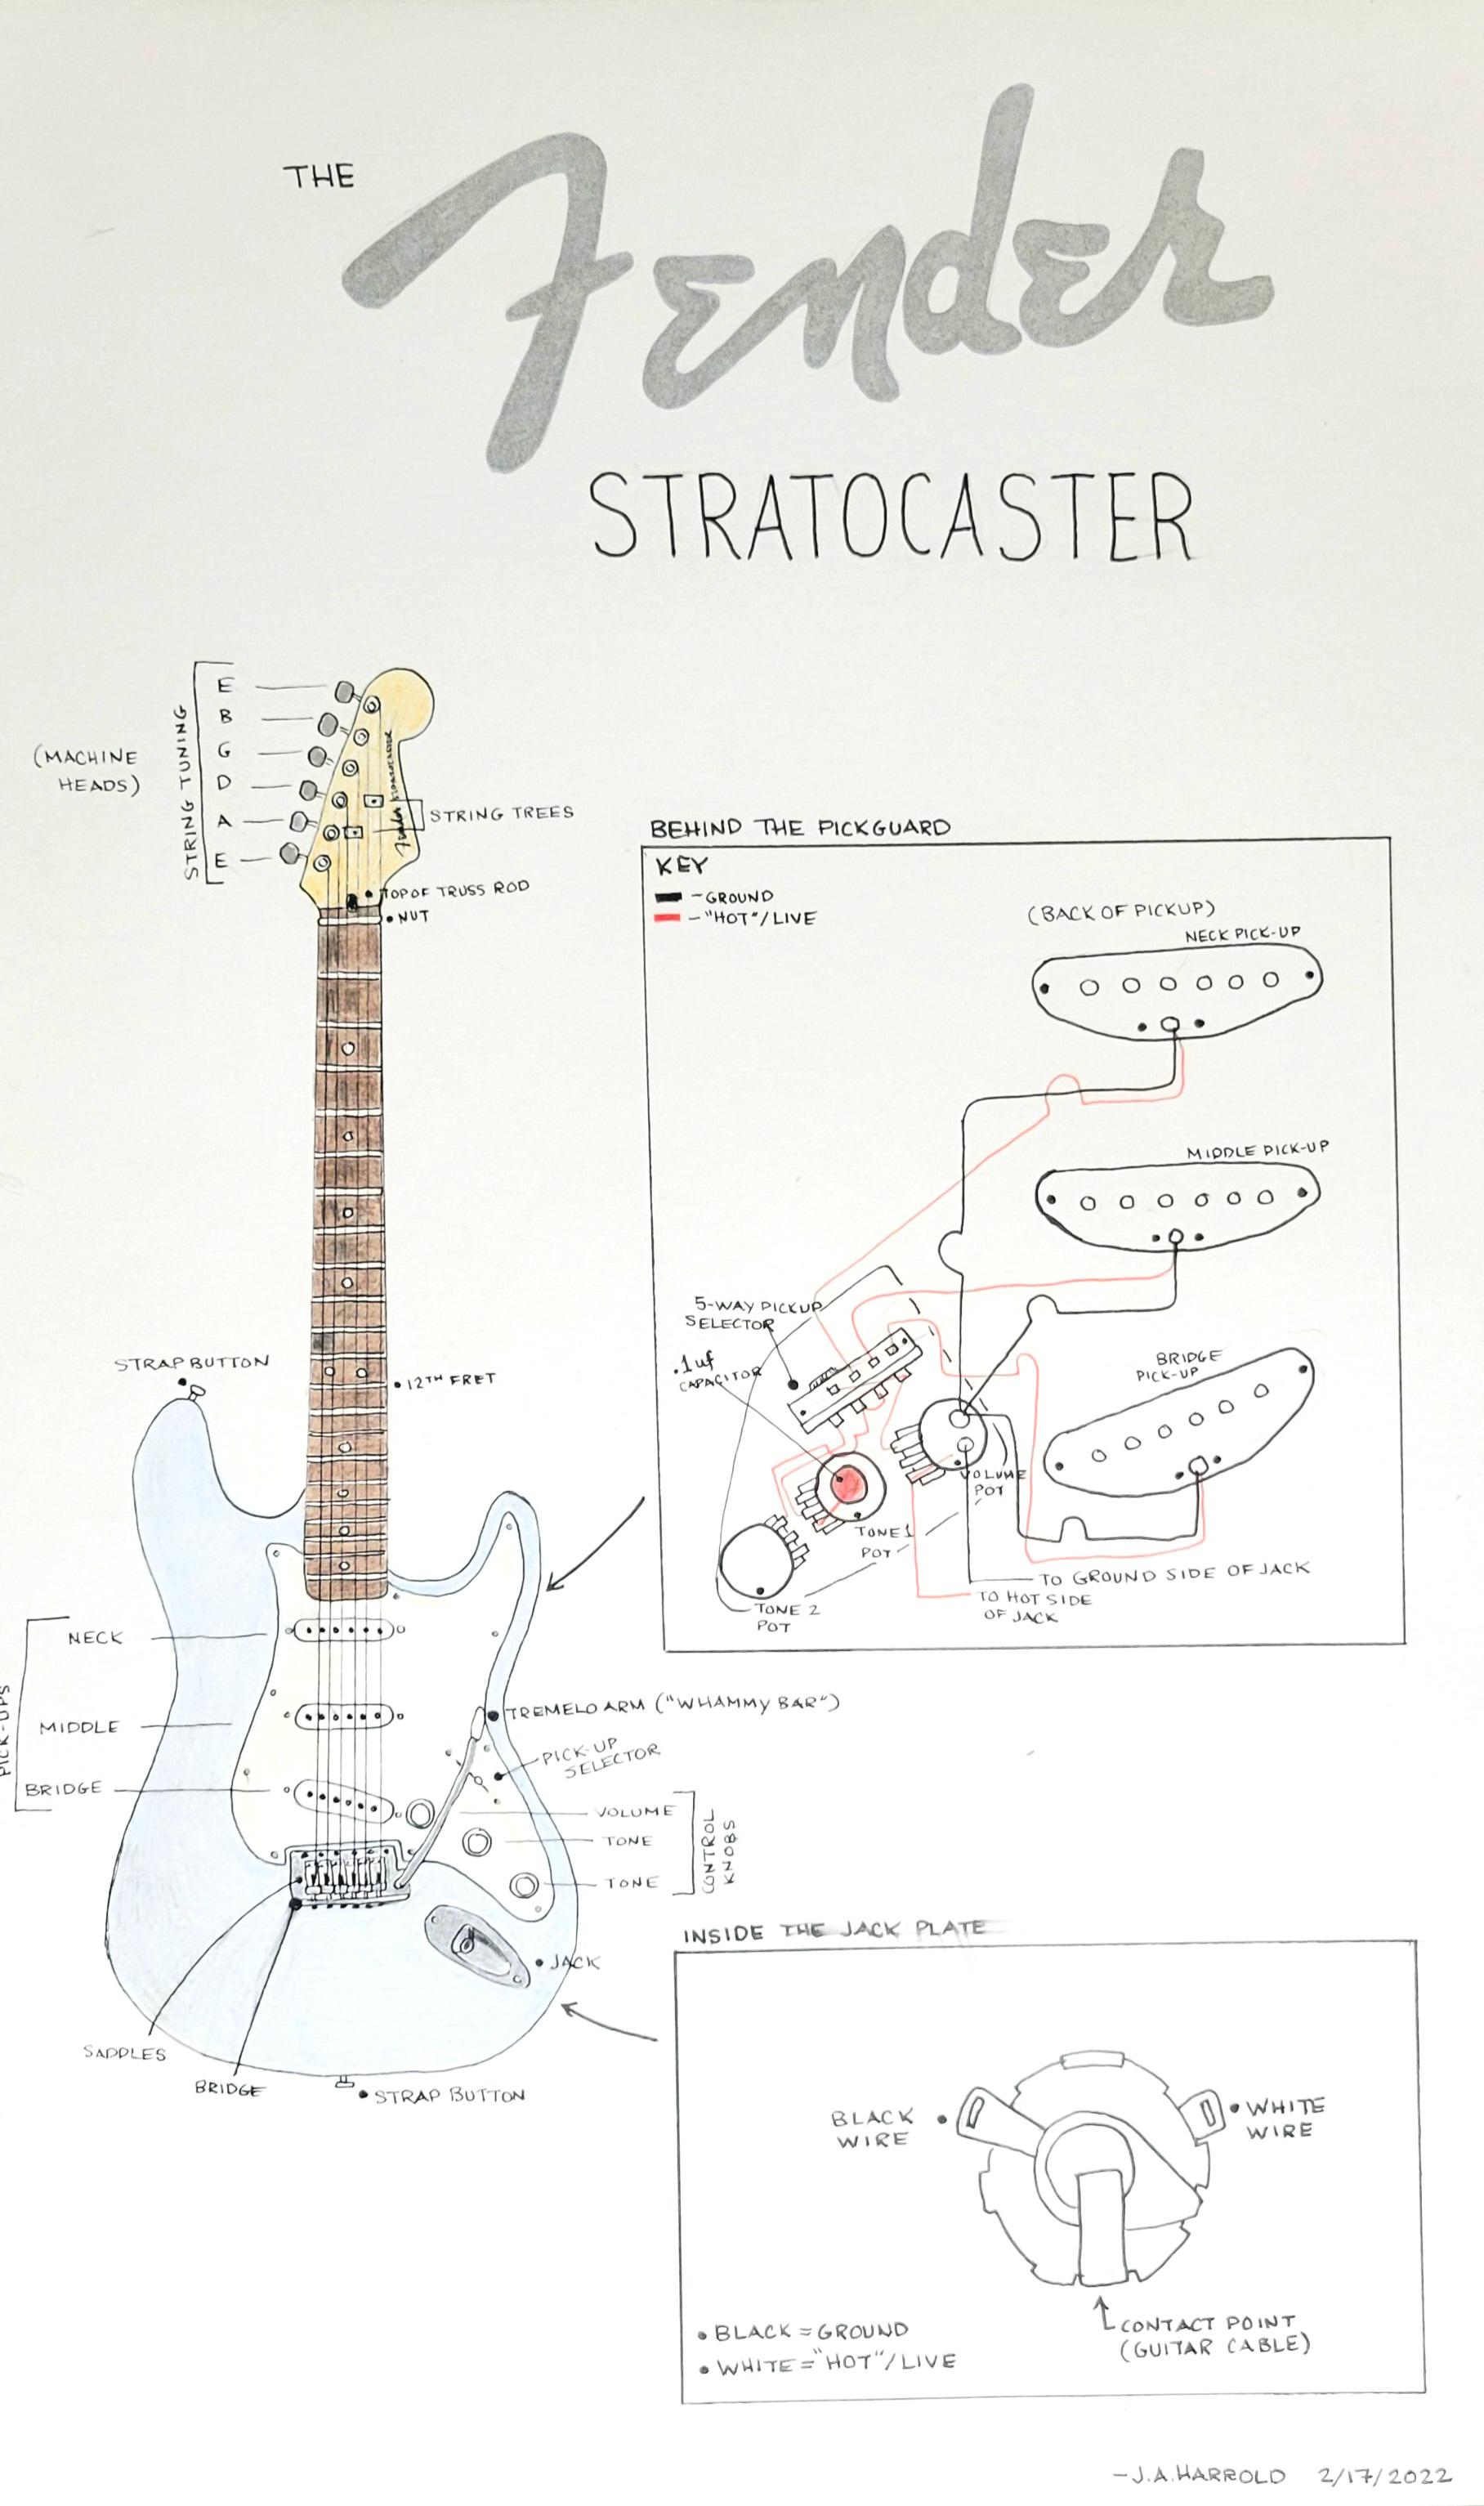 THE
Fender
STRATOCASTER
(MACHINE
HEADS)
STRING TUNING
E
B
G
D
A
E
Fender STRATOCASTER
STRING TREES
TOP OF TRUSS ROD
NUT
STRAP BUTTON
12TH FRET
PICK-UPS
NECK
MIDDLE
BRIDGE
TREMELO ARM ("WHAMMY BAR")
PICK-UP
SELECTOR
VOLUME
TONE
TONE
CONTROL
KNOBS
JACK
SADDLES
BRIDGE
STRAP BUTTON
BEHIND THE PICKGUARD
KEY
- GROUND
- "HOT"/LIVE
(BACK OF PICKUP)
NECK PICK-UP
MIDDLE PICK-UP
5-WAY PICKUP
SELECTOR
.1uf
CAPACITOR
BRIDGE
PICK-UP
VOLUME
POT
TONE 1
POT
TONE 2
POT
TO GROUND SIDE OF JACK
TO HOT SIDE
OF JACK
INSIDE THE JACK PLATE
BLACK
WIRE
WHITE
WIRE
CONTACT POINT
(GUITAR CABLE)
• BLACK = GROUND
• WHITE = "HOT"/LIVE
- J.A. HARROLD 2/17/2022